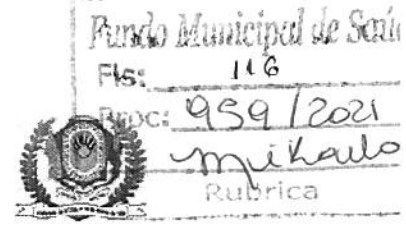 Fundo Municipal de Saú
Fls: 116
Proc: 959/2021
Mikaulo
Rubrica